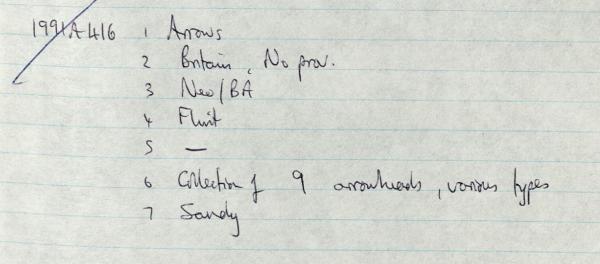 1991A416 1 Arrows
2 Britain, No prov.
3 Neo/BA
4 Flint
5 —
6 Collection of 9 arrowheads, various types
7 Sandy